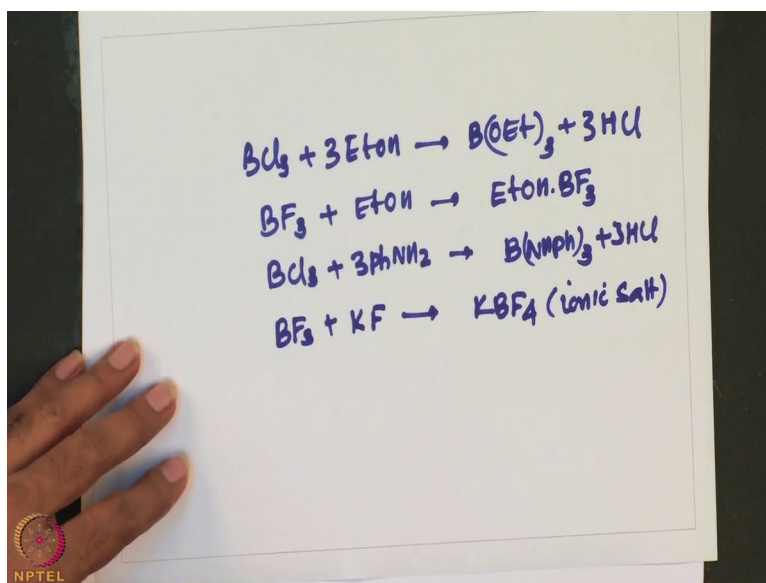 BCl₃ + 3EtOH → B(OEt)₃ + 3HCl
BF₃ + EtOH → EtOH.BF₃
BCl₃ + 3PhNH₂ → B(NHPh)₃ + 3HCl
BF₃ + KF → KBF₄ (ionic salt)
NPTEL